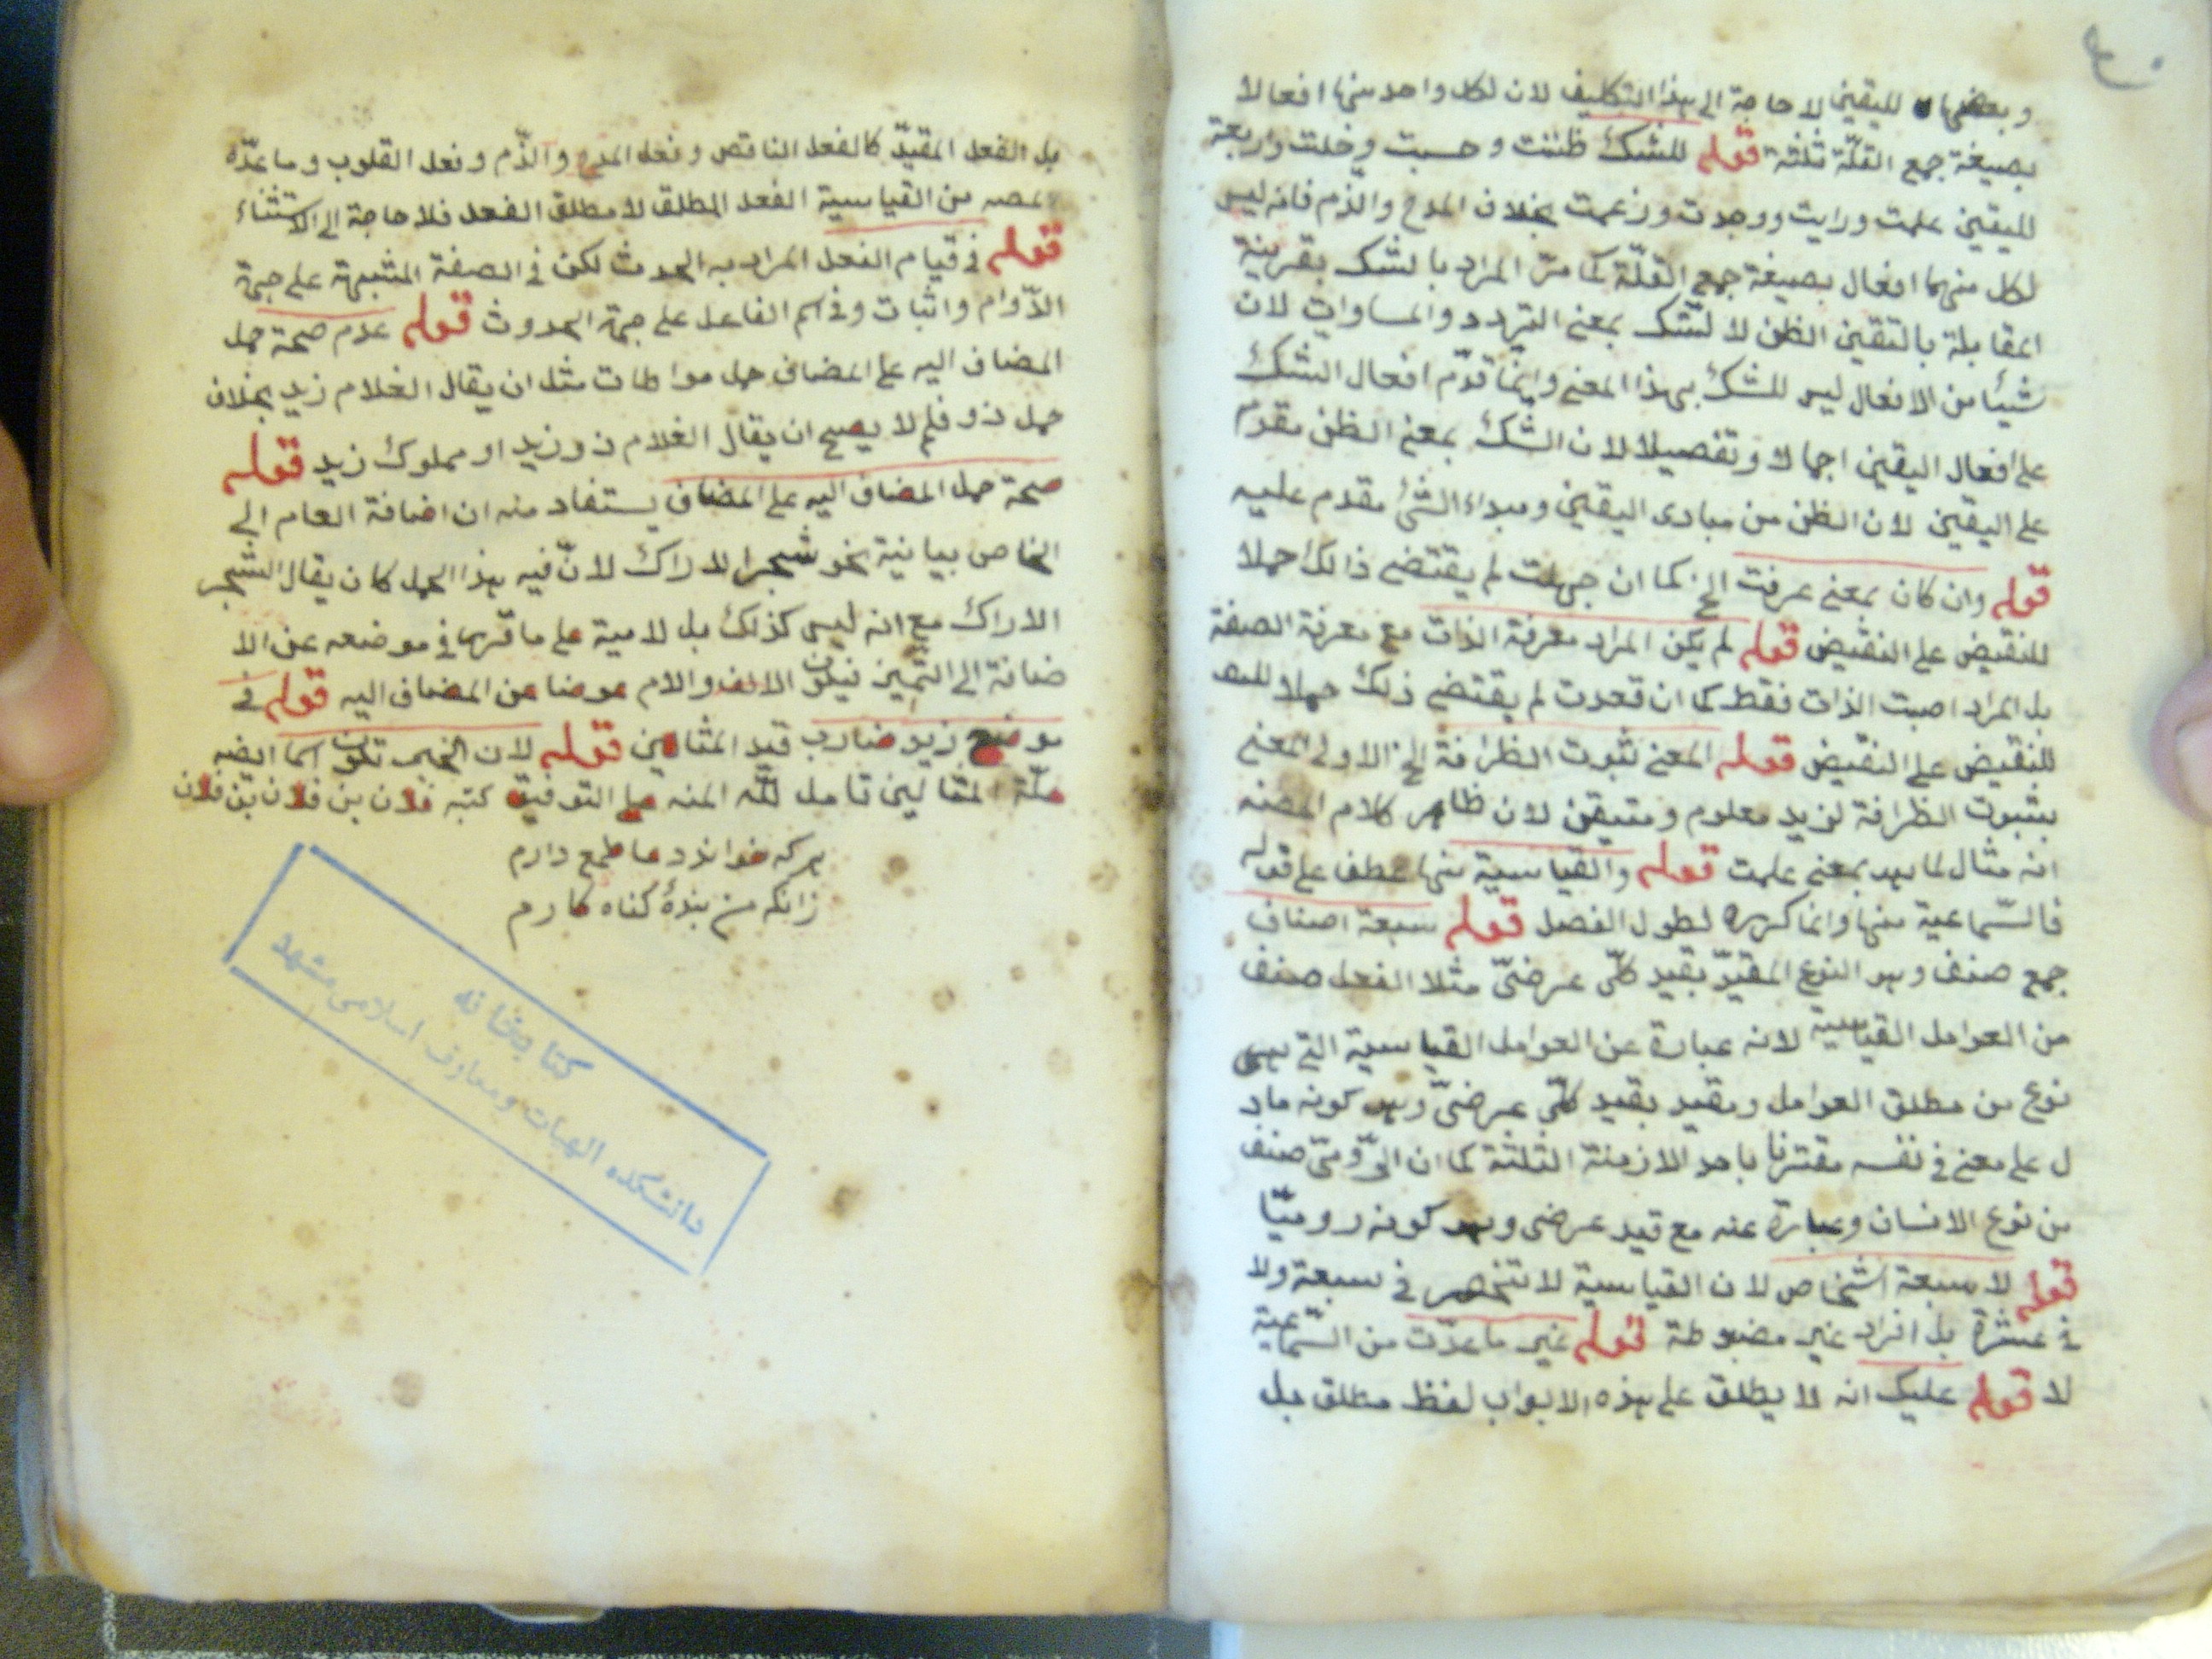 وبعضها لليقين لا حاجة الى هذا التكليف لان لكل واحد منها افعالا
بصيغة جمع القلّة ثلثة قوله للشك ظننت وحسبت وخلت واربعة
لليقين علمت ورايت ووجدت وزعمت بخلاف المدح والذّم فانه ليس
لكل منهما افعال بصيغة جمع القلّة كما مرّ المراد بالشك بقرينة
المقابلة باليقين الظن لا الشك بمعنى التردد والمساوات لان
شيئا من الافعال ليس للشك بهذا المعنى وانما قدّم افعال الشك
على افعال اليقين اجمالا وتفصيلا لان الشك بمعنى الظن مقدم
على اليقين لان الظن من مبادى اليقين ومبداء الشئ مقدم عليه
قوله وان كان بمعنى عرفت الخ كما ان جهلت لم يقتضى ذالك حملا
للنقيض على النقيض قوله لم يكن المراد معرفة الذات مع معرفة الصفة
بل المراد اصبت الذات فقط كما ان قعدت لم يقتضى ذلك حملا
للنقيض على النقيض قوله المعنى ثبوت الظرافة الخ الاولى المعنى
بثبوت الظرافة لزيد معلوم ومتيقن لان ظاهر كلام المصنه
انه مثال لما هو بمعنى علمت قوله والقياسية منها عطف على قوله
فالسّماعية منها وانما كرره لطول الفصل قوله سبعة اصناف
جمع صنف وهو النوع المقيّد بقيد كلّى عرضىّ مثلا الفعل صنف
من العوامل القياسية لانه عبارة عن العوامل القياسية التى هى
نوع من مطلق العوامل ومقيد بقيد كلّى عرضىّ وهو كونه ماد
ل على معنى فى نفسه مقترنا باحد الازمنة الثلثة كما ان الرّومىّ صنف
من نوع الانسان وعبارة عنه مع قيد عرضى وهو كونه روميّا
قوله لا سبعة اشخاص لان القياسية لا تنحصر فى سبعة ولا
فى عشرة بل افراد غير مضبوطة قوله غير ما عدّت من السّماعية
لا قوله عليك انه لا يطلق على هذه الابواب لفظ مطلق بل
بل الفعل المقيّد كالفعل الناقص وفعل المدح والذّم وفعل القلوب وما عدّه
المصه من القياسية الفعل المطلق لا مطلق الفعل فلا حاجة الى الاستثناء
قوله فى قيام الفعل المراد به الحدوث لكن فى الصفة المشبهة على جهة
الدّوام واثبات وفى اسم الفاعل على جهة الحدوث قوله عدم صحة حمل
المضاف اليه على المضاف حمل مواطات مثل ان يقال الغلام زيد بخلاف
حمل ذو فلم لا يصح ان يقال الغلام ذو زيد او مملوك زيد قوله
صحة حمل المضاف اليه على المضاف يستفاد منه ان اضافة العام الى
الخاص بيانية نحو شجر الاراك لانّ فيه هذا الحمل كان يقال الشجر
الاراك مع انه ليس كذلك بل لامية على ما قرّها فى موضعه عن الا
ضافة الى التميز فيكون الالف والام عوضا عن المضاف اليه قوله فى
موضع زيد ضارب قيد المثالين قوله لان الخبر تكون اسما
المثالين تامل للّه المنه على التوفيق كتبه فلان بن فلان بن فلان
هر كه خواند دعا طمع دارم
زانكه من بندهٔ كناه كارم
كتابخانه
دانشكده الهيات ومعارف اسلامى مشهد